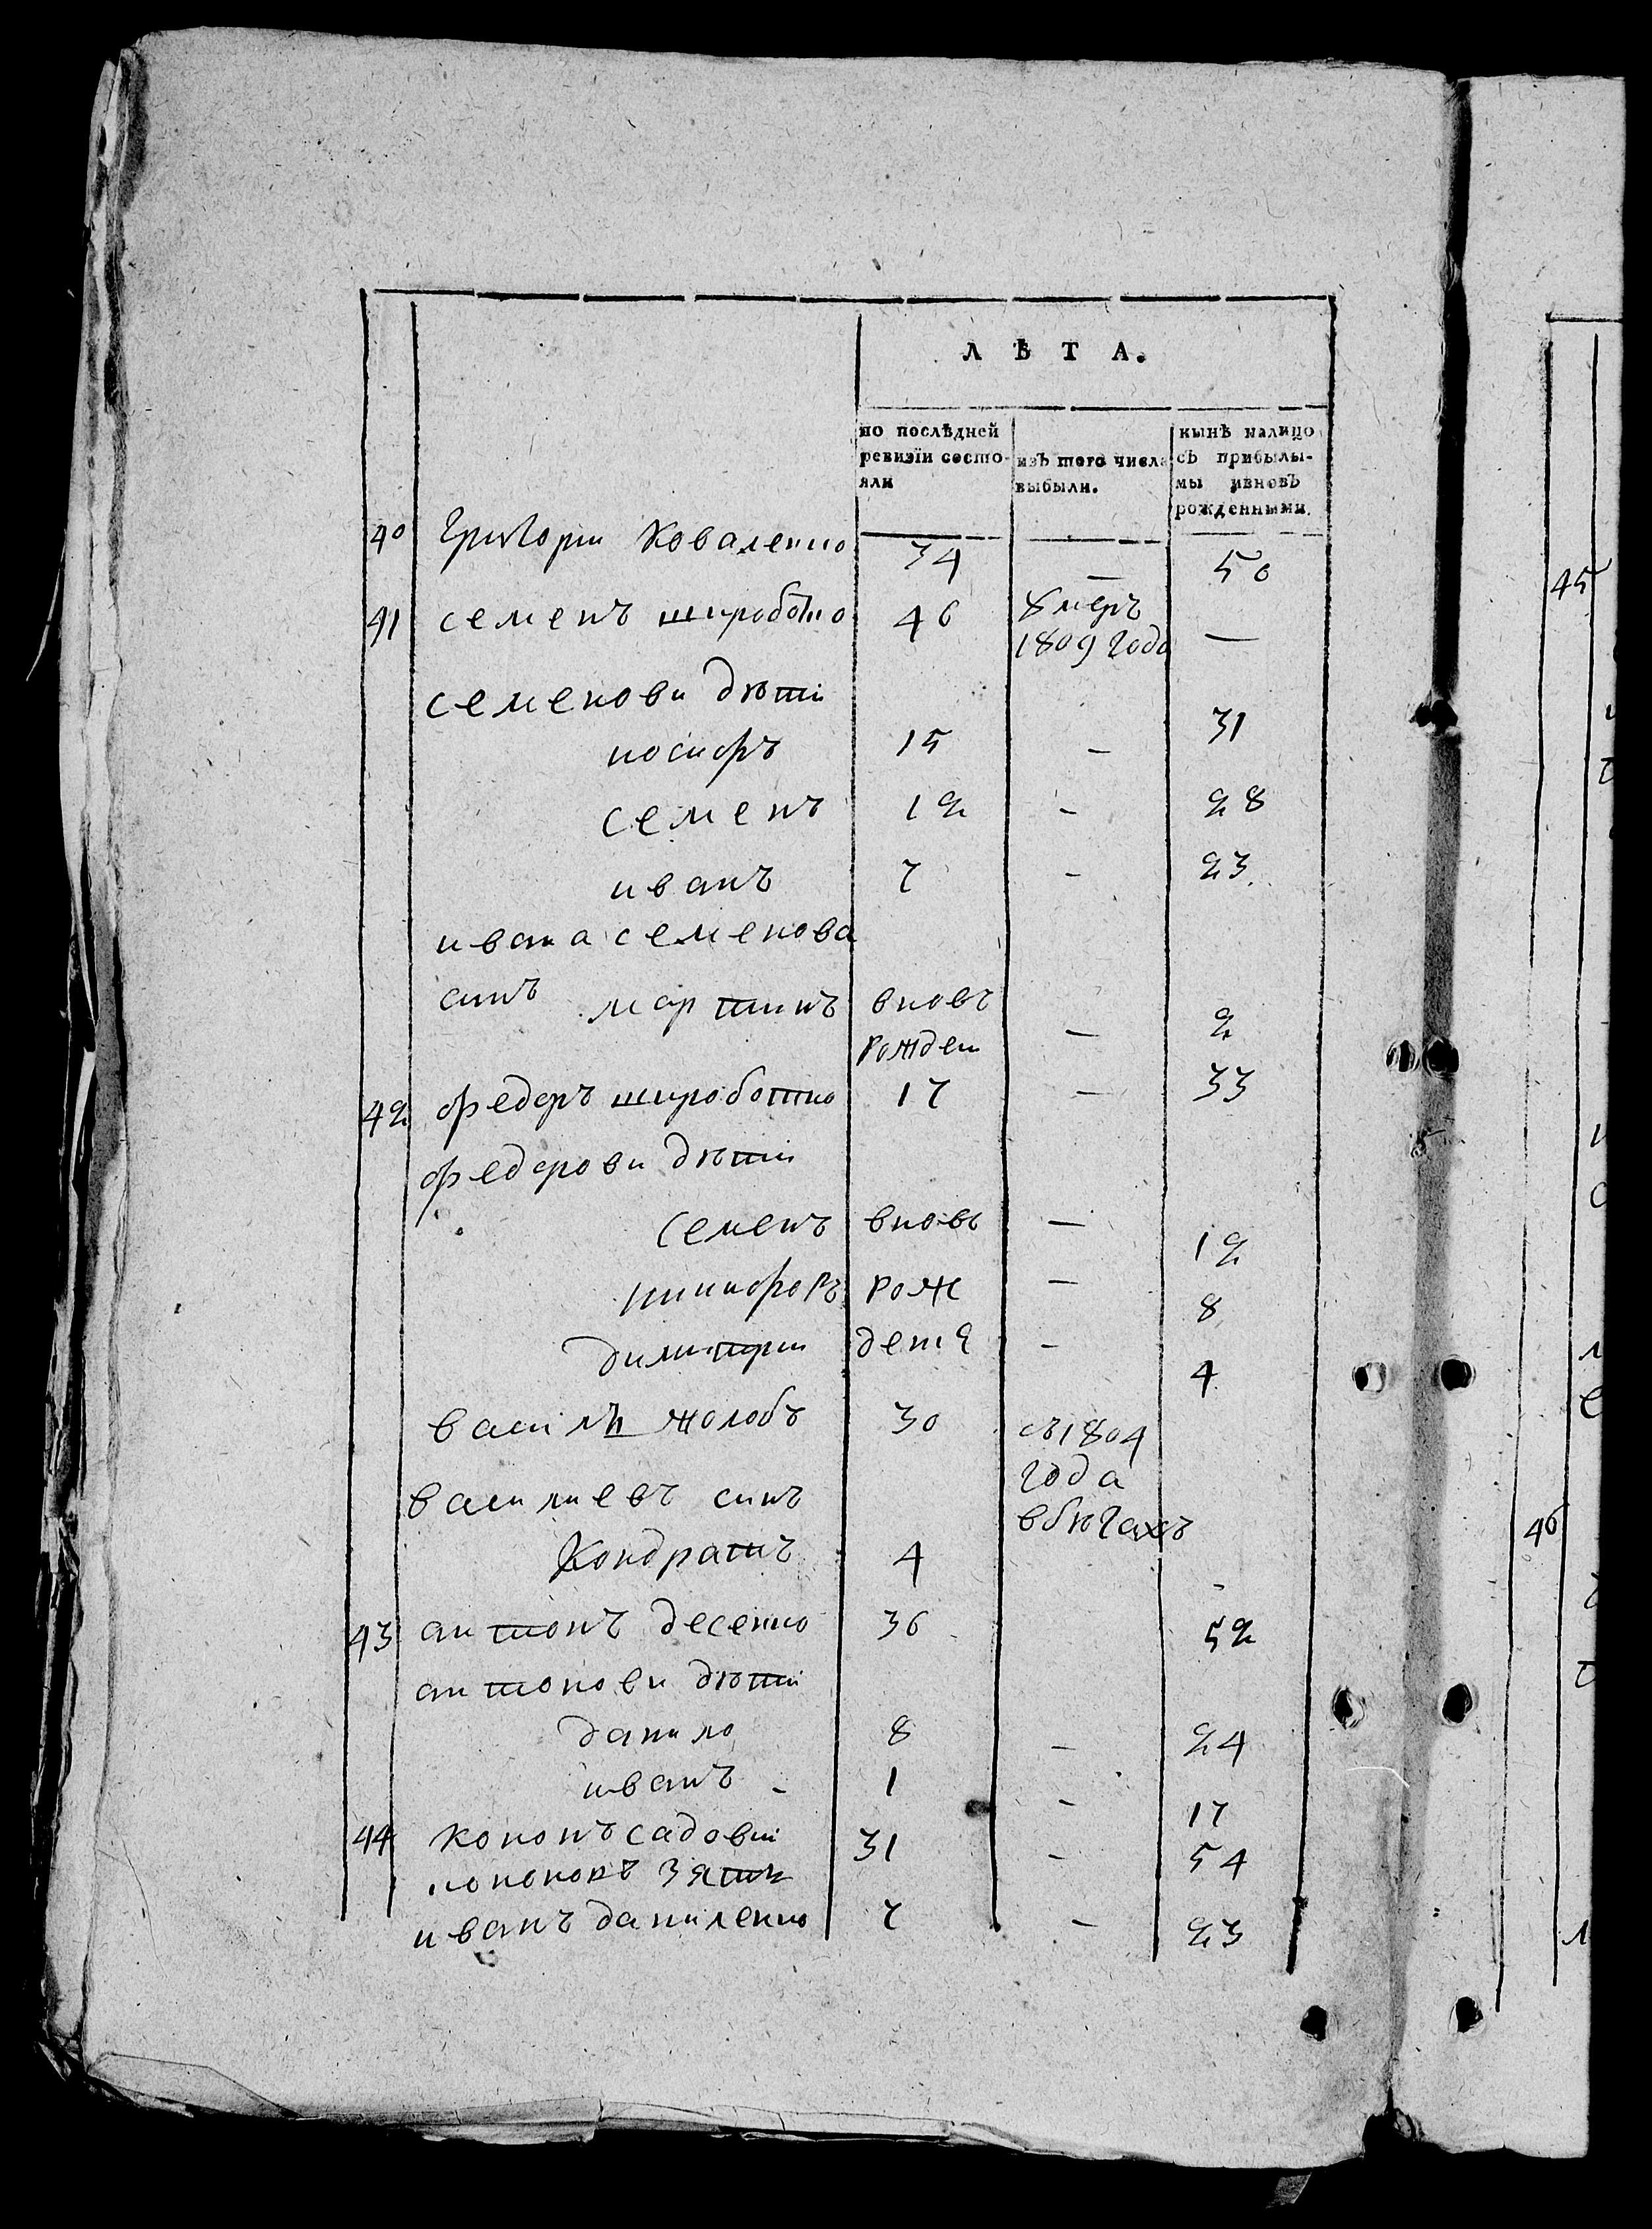 ЛѢТА.
по послѣдней ревизіи состояли
изъ того числа выбыли.
нынѣ налицо съ прибылымы ивновъ рожденными.
40 Григорий Коваленко 34 — 50
41 семенъ широботко 46 умеръ 1809 года —
семенови дѣти
иосифъ 15 — 31
семенъ 12 — 28
иванъ 7 — 23
ивана семенова
синъ мартинъ вновъ рожден — 2
42 федоръ широботко 17 — 33
федорови дѣти
семенъ вновь — 12
никифоръ рож — 8
димитрий дения — 4
василь жолобъ 30 съ 1804 года вбѣгахъ
василиевъ синъ
Кондратъ 4 -
43 антонъ десенко 36 52
антонови дѣти
данило 8 — 24
иванъ - 1 — 17
44 кононъ садовий 31 — 54
кононовъ зять
иванъ даниленко 7 — 23
45
46